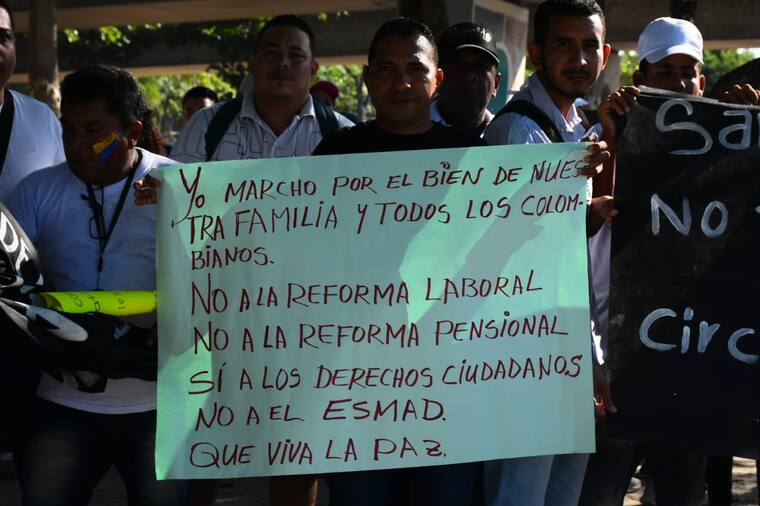 Yo MARCHO POR EL BIEN DE NUES-
TRA FAMILIA Y TODOS LOS COLOM-
BIANOS.
NO A LA REFORMA LABORAL
NO A LA REFORMA PENSIONAL
SÍ A LOS DERECHOS CIUDADANOS
NO A EL ESMAD.
QUE VIVA LA PAZ.
No
Circ